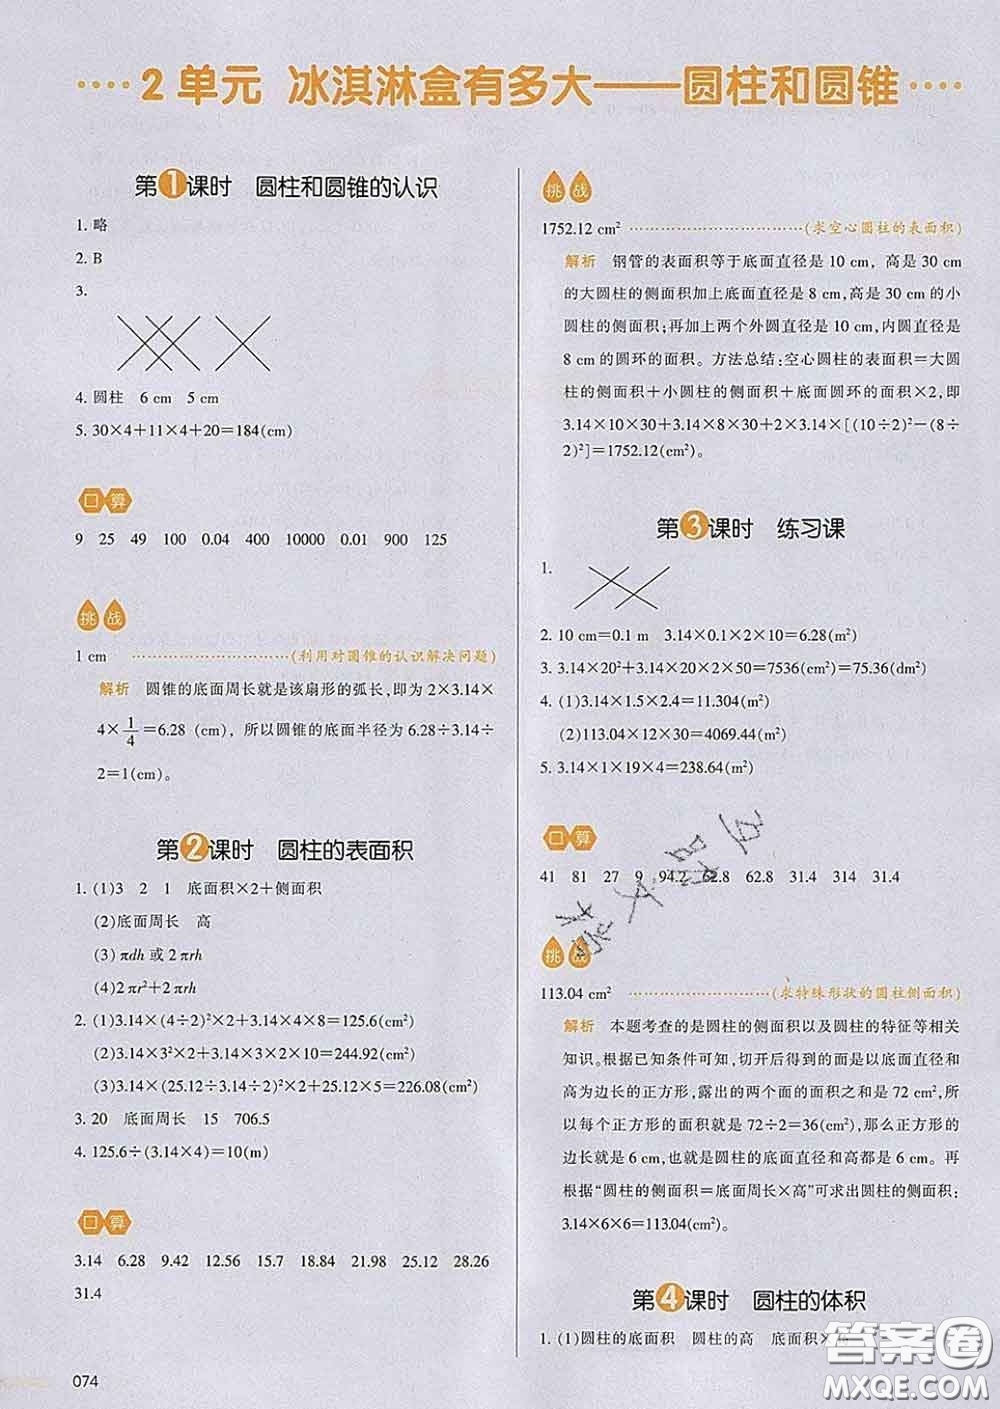 2 单元 冰淇淋盒有多大——圆柱和圆锥
第1课时 圆柱和圆锥的认识
1. 略
2. B
3.
4. 圆柱 6 cm 5 cm
5. 30×4+11×4+20=184(cm)
口算
9 25 49 100 0.04 400 10000 0.01 900 125
挑战
1 cm ……………………(利用对圆锥的认识解决问题)
解析 圆锥的底面周长就是该扇形的弧长，即为 2×3.14×
4×1/4=6.28 (cm)，所以圆锥的底面半径为 6.28÷3.14÷
2=1(cm)。
第2课时 圆柱的表面积
1. (1)3 2 1 底面积×2+侧面积
(2)底面周长 高
(3) πdh 或 2πrh
(4)2πr²+2πrh
2. (1)3.14×(4÷2)²×2+3.14×4×8=125.6(cm²)
(2)3.14×3²×2+3.14×3×2×10=244.92(cm²)
(3)3.14×(25.12÷3.14÷2)²×2+25.12×5=226.08(cm²)
3. 20 底面周长 15 706.5
4. 125.6÷(3.14×4)=10(m)
口算
3.14 6.28 9.42 12.56 15.7 18.84 21.98 25.12 28.26
31.4
074
挑战
1752.12 cm² ……………………(求空心圆柱的表面积)
解析 钢管的表面积等于底面直径是 10 cm，高是 30 cm
的大圆柱的侧面积加上底面直径是 8 cm，高是 30 cm 的小
圆柱的侧面积；再加上两个外圆直径是 10 cm，内圆直径是
8 cm 的圆环的面积。方法总结：空心圆柱的表面积=大圆
柱的侧面积+小圆柱的侧面积+底面圆环的面积×2，即
3.14×10×30+3.14×8×30+2×3.14×[(10÷2)²-(8÷
2)²]=1752.12(cm²)。
第3课时 练习课
1.
2. 10 cm=0.1 m 3.14×0.1×2×10=6.28(m²)
3. 3.14×20²+3.14×20×2×50=7536(cm²)=75.36(dm²)
4. (1)3.14×1.5×2.4=11.304(m²)
(2)113.04×12×30=4069.44(m²)
5. 3.14×1×19×4=238.64(m²)
口算
41 81 27 9 94.2 62.8 62.8 31.4 314 31.4
挑战
113.04 cm² ……………………(求特殊形状的圆柱侧面积)
解析 本题考查的是圆柱的侧面积以及圆柱的特征等相关
知识。根据已知条件可知，切开后得到的面是以底面直径和
高为边长的正方形，露出的两个面的面积之和是 72 cm²，所
以每个正方形的面积就是 72÷2=36(cm²)，那么正方形的
边长就是 6 cm，也就是圆柱的底面直径和高都是 6 cm。再
根据“圆柱的侧面积=底面周长×高”可求出圆柱的侧面积：
3.14×6×6=113.04(cm²)。
第4课时 圆柱的体积
1. (1)圆柱的底面积 圆柱的高 底面积×
答案圈
MXQE.COM